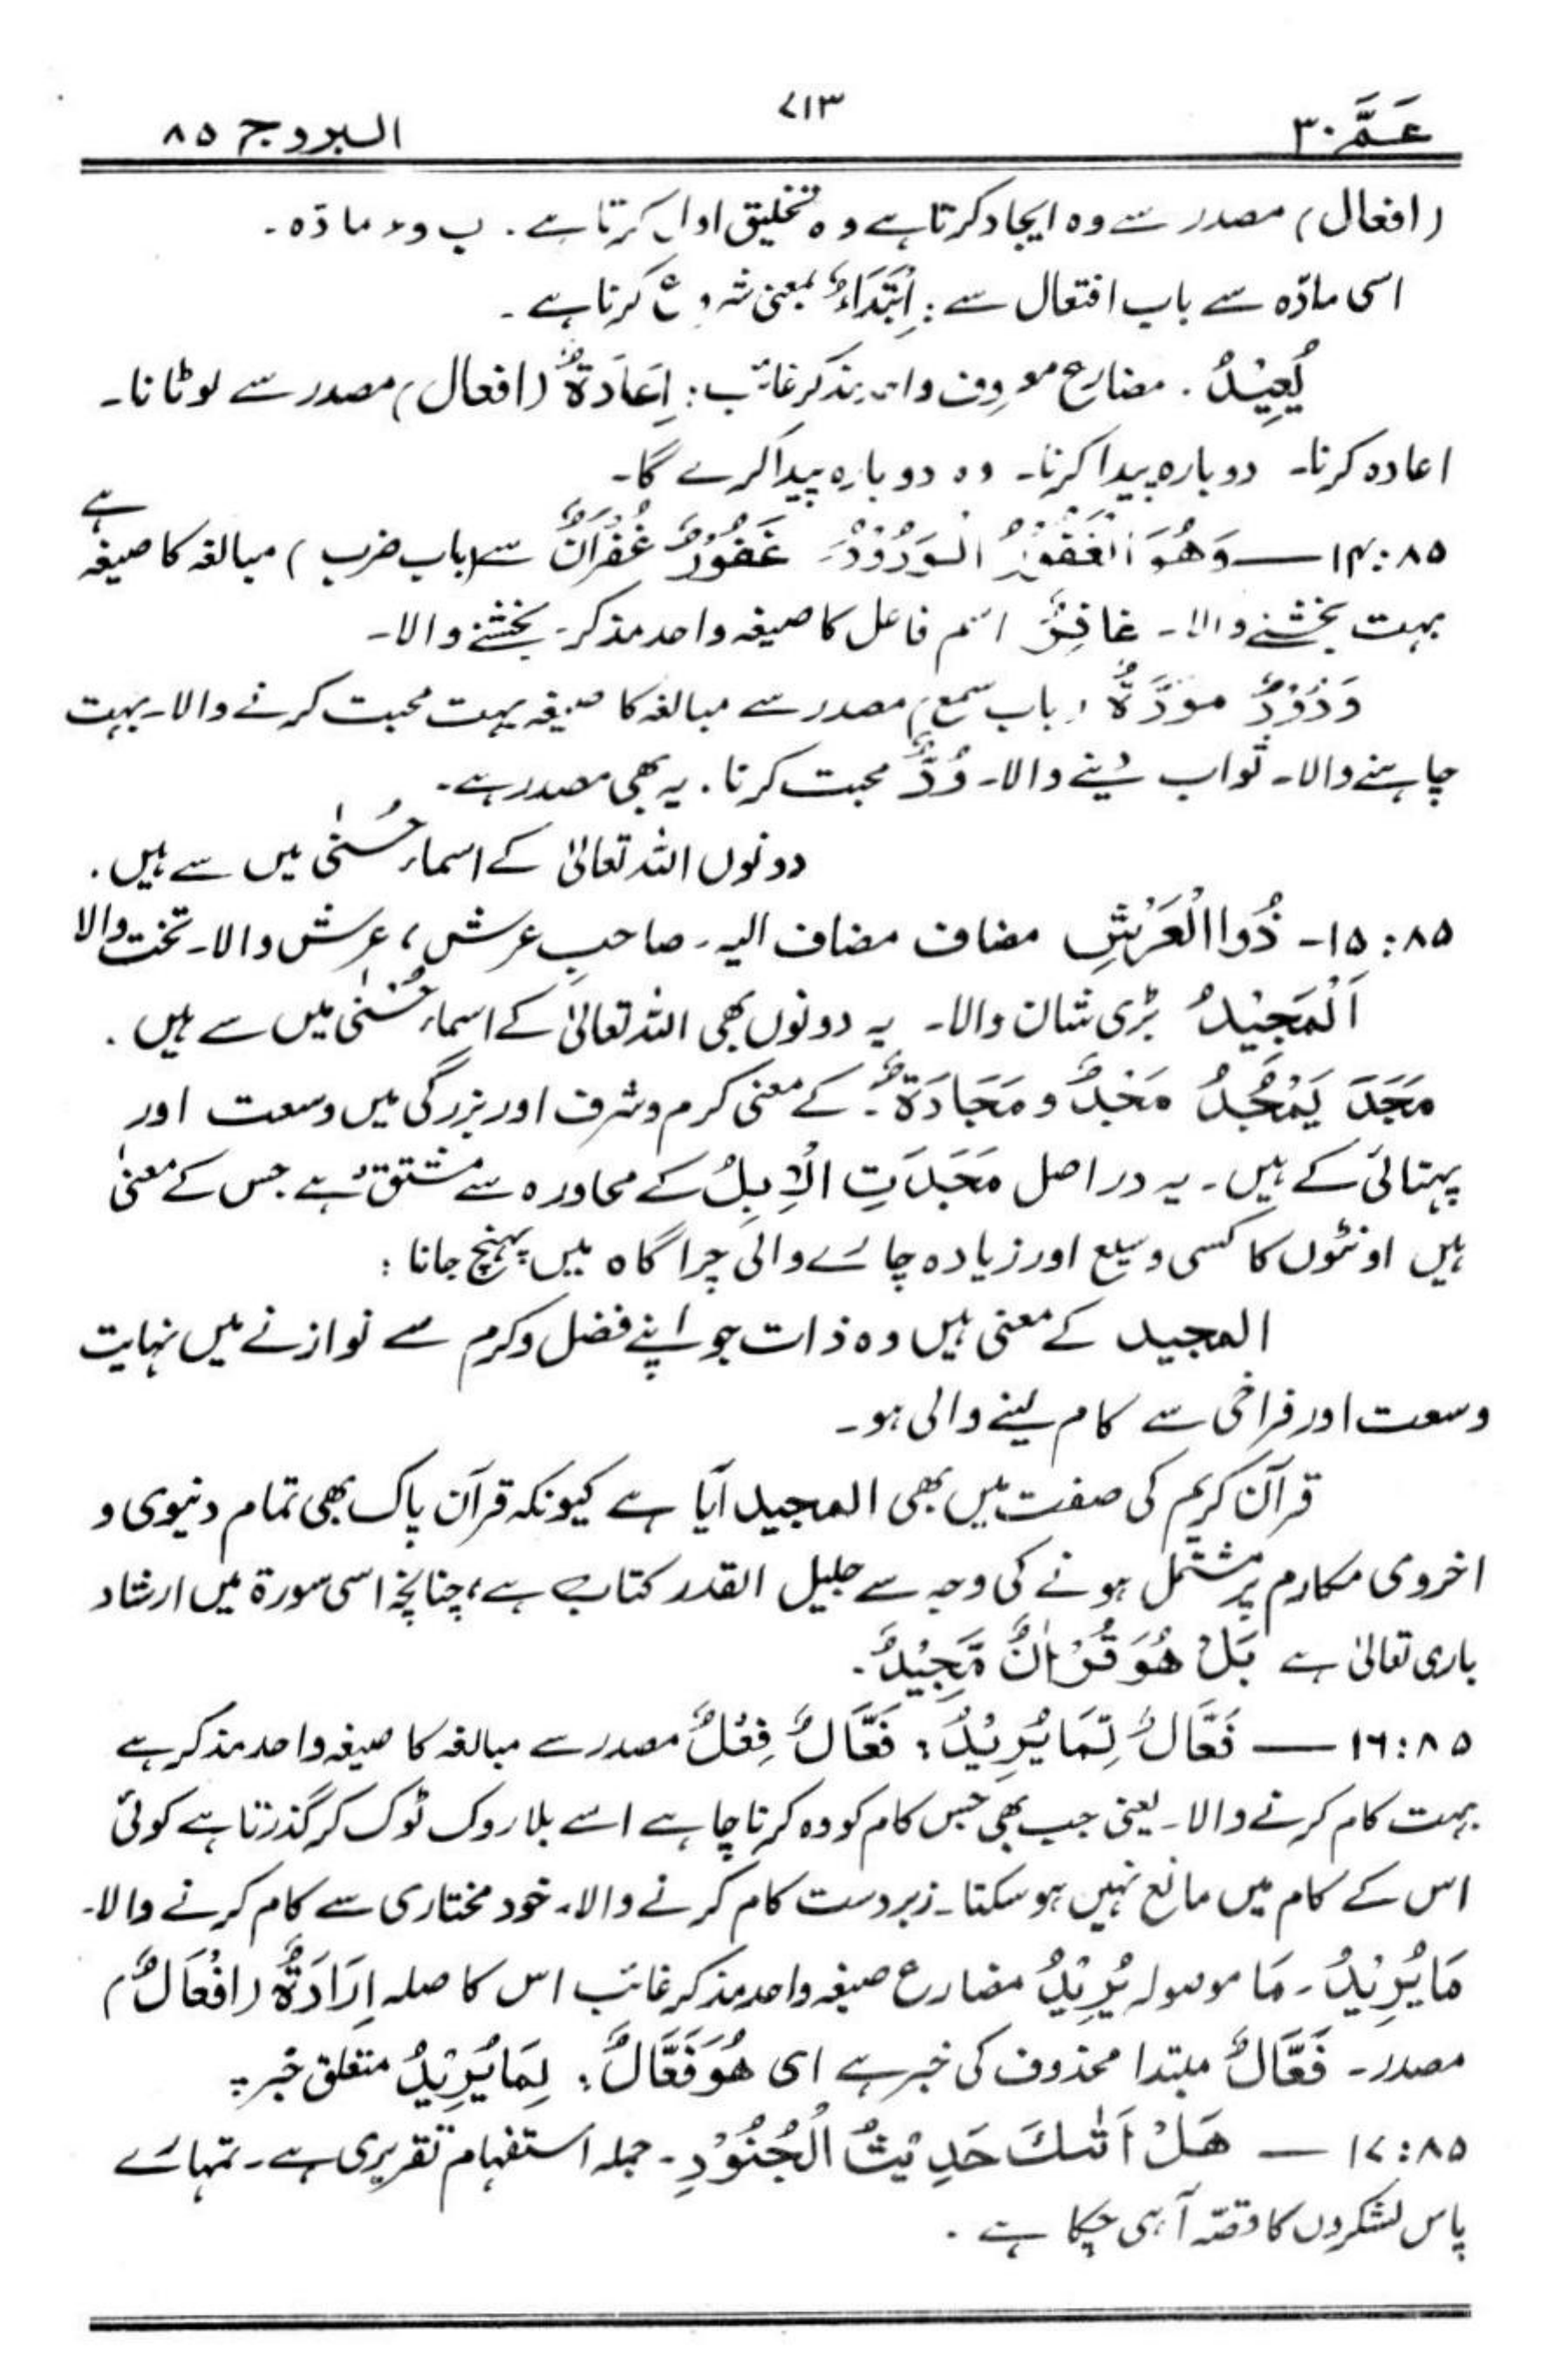 عَمَّ ۳۰
۷۱۳
البروج ۸۵
(افعال) مصدر سے وہ ایجاد کرتا ہے وہ تخلیق اول کرتا ہے۔ ب دء مادّہ۔
اسی مادّہ سے باب افتعال سے: اِبْتَدَاءٌ بمعنی شروع کرنا ہے۔
یُعِیْدُ۔ مضارع معروف واحد مذکر غائب: اِعَادَۃٌ (افعال) مصدر سے لوٹانا۔
اعادہ کرنا۔ دوبارہ پیدا کرنا۔ وہ دوبارہ پیدا کرے گا۔
۸۵:۱۴ — وَھُوَ الْغَفُوْرُ الْوَدُوْدُ۔ غَفُوْرٌ غُفْرَانٌ سے (باب ضرب) مبالغہ کا صیغہ ہے
بہت بخشنے والا۔ غافِرٌ اسم فاعل کا صیغہ واحد مذکر۔ بخشنے والا۔
وَدُوْدٌ مَوَدَّۃٌ (باب سمع) مصدر سے مبالغہ کا صیغہ بہت محبت کرنے والا۔ بہت
چاہنے والا۔ ثواب دینے والا۔ وُدٌّ محبت کرنا۔ یہ بھی مصدر ہے۔
دونوں اللہ تعالیٰ کے اسماء حُسنٰی میں سے ہیں۔
۸۵:۱۵۔ ذُوا الْعَرْشِ مضاف مضاف الیہ۔ صاحبِ عرش، عرش والا۔ تخت والا
اَلْمَجِیْدُ بڑی شان والا۔ یہ دونوں بھی اللہ تعالیٰ کے اسماء حُسنٰی میں سے ہیں۔
مَجَدَ یَمْجُدُ مَجْدٌ و مَجَادَۃٌ۔ کے معنی کرم و شرف اور بزرگی میں وسعت اور
پہنائی کے ہیں۔ یہ دراصل مَجَدَتِ الْاِبِلُ کے محاورہ سے مشتق ہے جس کے معنیٰ
ہیں اونٹوں کا کسی وسیع اور زیادہ چارے والی چراگاہ میں پہنچ جانا:
المجید کے معنی ہیں وہ ذات جو اپنے فضل و کرم سے نوازنے میں نہایت
وسعت اور فراخی سے کام لینے والی ہو۔
قرآن کریم کی صفت میں بھی المجید آیا ہے کیونکہ قرآن پاک بھی تمام دنیوی و
اخروی مکارم پر مشتمل ہونے کی وجہ سے جلیل القدر کتاب ہے، چنانچہ اسی سورۃ میں ارشاد
باری تعالیٰ ہے بَلْ ھُوَ قُرْاٰنٌ مَّجِیْدٌ۔
۸۵:۱۶ — فَعَّالٌ لِّمَا یُرِیْدُ: فَعَّالٌ فِعْلٌ مصدر سے مبالغہ کا صیغہ واحد مذکر ہے
بہت کام کرنے والا۔ یعنی جب بھی جس کام کو وہ کرنا چاہے اسے بلا روک ٹوک کر گذرتا ہے کوئی
اس کے کام میں مانع نہیں ہو سکتا۔ زبردست کام کرنے والا۔ خود مختاری سے کام کرنے والا۔
مَا یُرِیْدُ۔ مَا موصولہ یُرِیْدُ مضارع صیغہ واحد مذکر غائب اس کا صلہ اِرَادَۃٌ (افْعَالٌ)
مصدر۔ فَعَّالٌ مبتدا محذوف کی خبر ہے ای ھُوَ فَعَّالٌ: لِمَا یُرِیْدُ متعلق خبر۔
۸۵:۱۷ — ھَلْ اَتٰکَ حَدِیْثُ الْجُنُوْدِ۔ جملہ استفہام تقریری ہے۔ تمہارے
پاس لشکروں کا قصّہ آ ہی چکا ہے۔